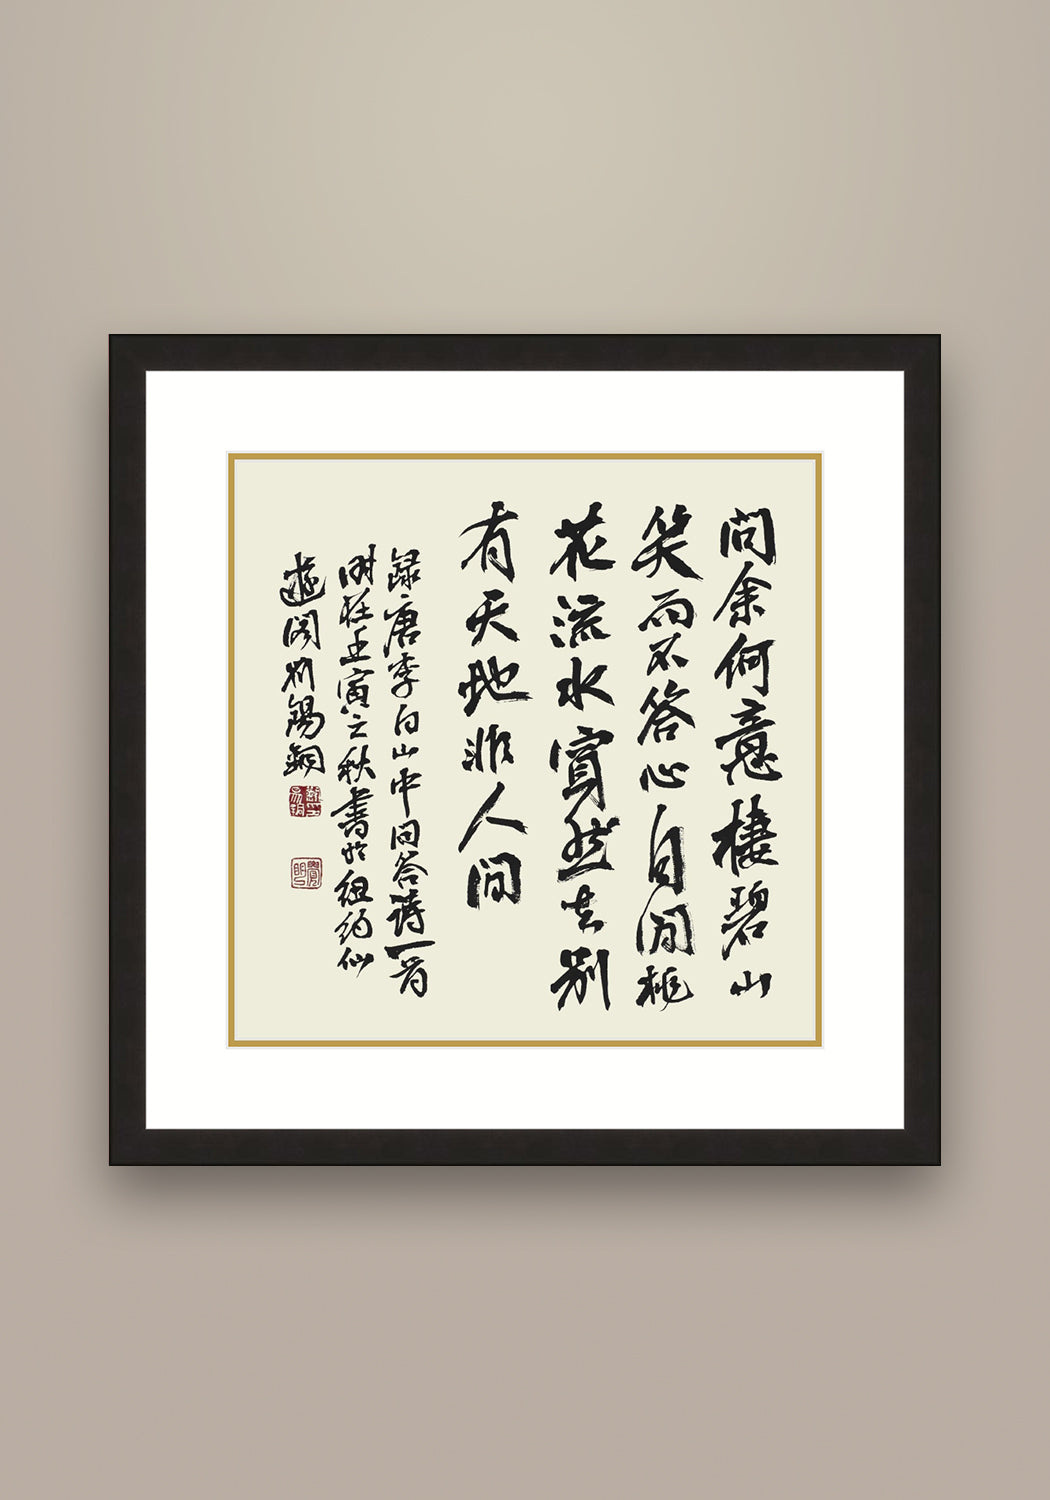 問余何意棲碧山
笑而不答心自閒桃
花流水窅然去別
有天地非人間
録唐李白山中問答詩一首
時在壬寅之秋書於紐約仙
遊閣錫銅